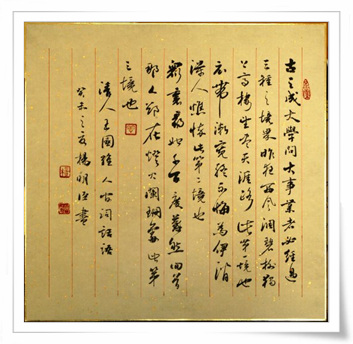 古之成大學問大事業者必經過
三種之境界昨夜西風凋碧樹獨
上高樓望盡天涯路此第一境也
衣帶漸寬終不悔為伊消
得人憔悴此第二境也
衆裏尋他千百度驀然回首
那人却在燈火闌珊處此第
三境也
清人王國維人間詞話語
癸未之楊明臣書